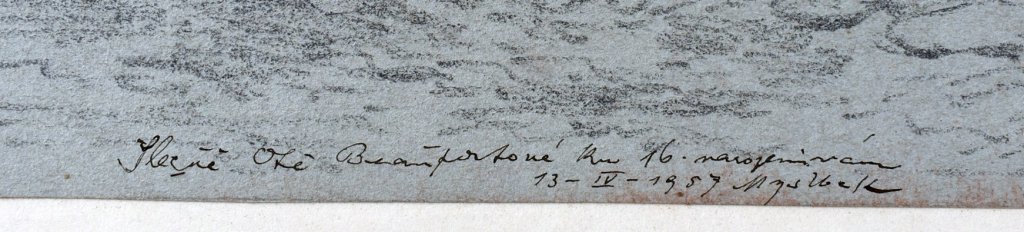 Slečně Otě Beaufortové ku 16. narozeninám
13 - IV - 1957 Myslbek